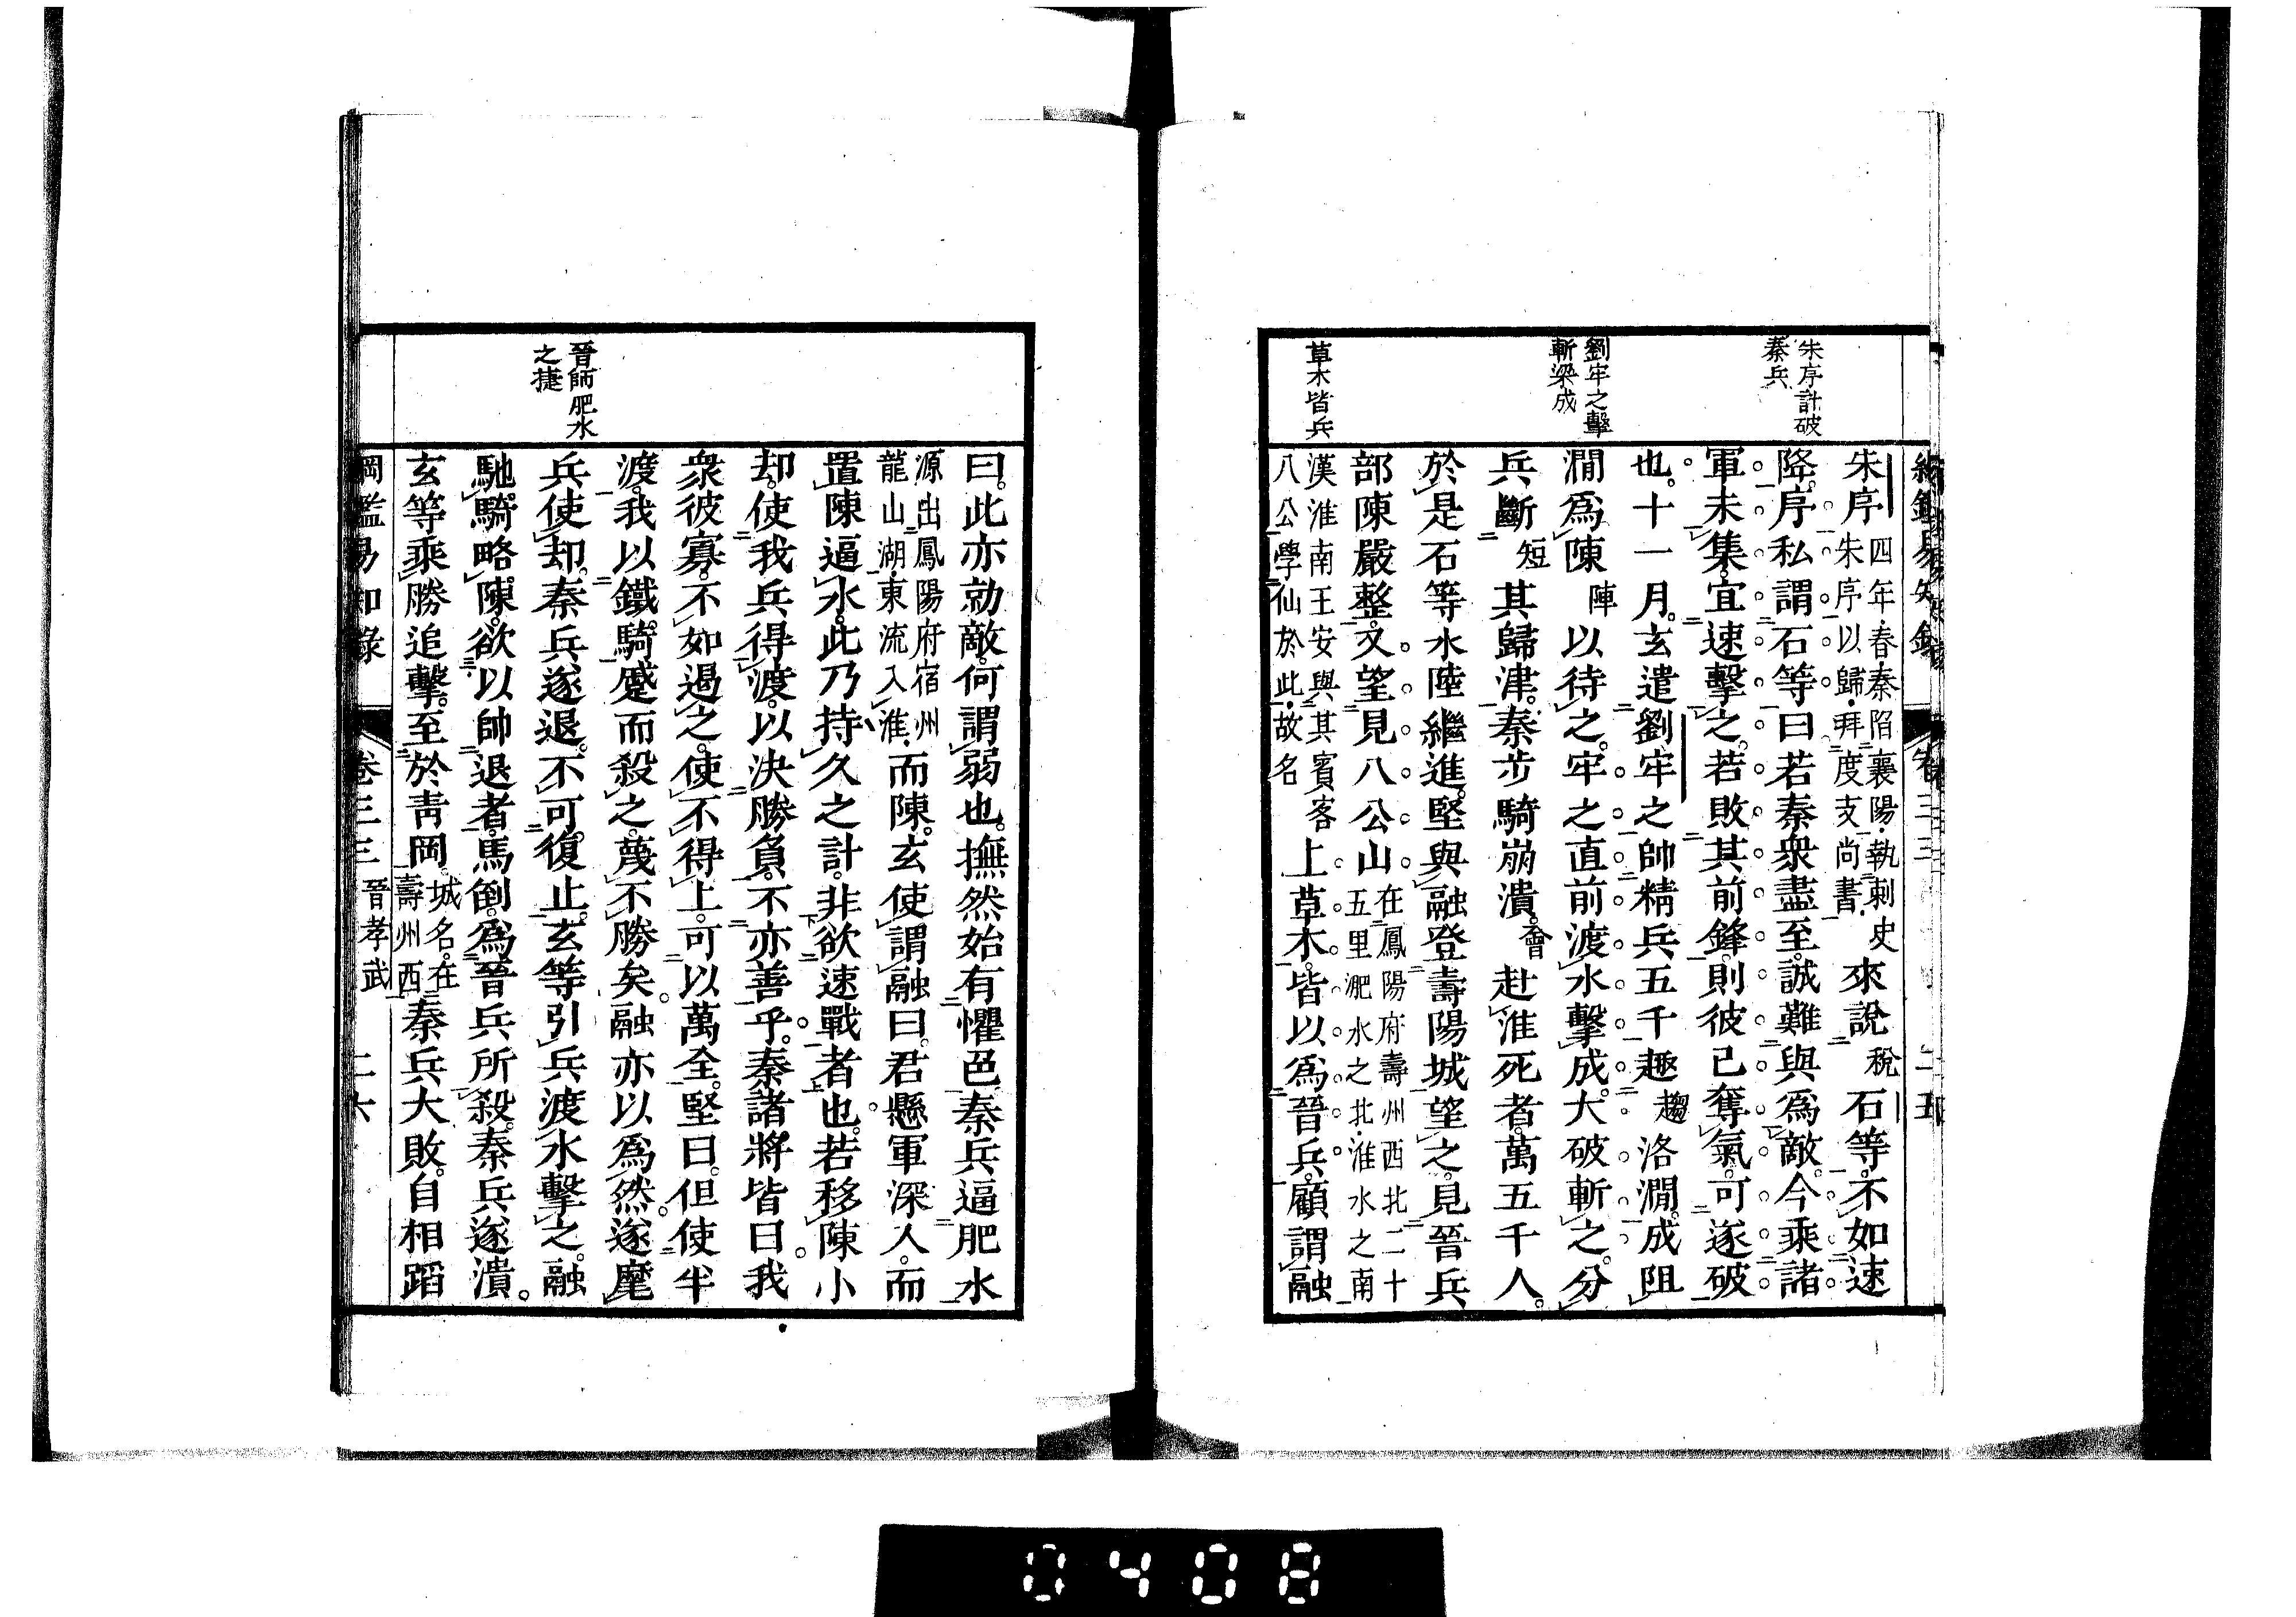 朱序計破
秦兵
劉牢之擊
斬梁成
草木皆兵
朱序四年春秦陷襄陽執刺史朱序以歸拜度支尚書來說稅石等不如速
降序私謂石等曰若秦衆盡至誠難與爲敵今乘諸
軍未集宜速擊之若敗其前鋒則彼已奪氣可遂破
也十一月玄遣劉牢之帥精兵五千趣趨洛澗成阻
澗爲陳陣以待之牢之直前渡水擊成大破斬之分
兵斷短其歸津秦步騎崩潰會赴淮死者萬五千人
於是石等水陸繼進堅與融登壽陽城望之見晉兵
部陳嚴整又望見八公山在鳳陽府壽州西北二十五里淝水之北淮水之南
漢淮南王安與其賓客八公學仙於此故名上草木皆以爲晉兵顧謂融
綱鑑易知錄 卷三三 晉孝武 二六
晉師肥水
之捷
曰此亦勍敵何謂弱也撫然始有懼色秦兵逼肥水
源出鳳陽府宿州龍山湖東流入淮而陳玄使謂融曰君懸軍深入而
置陳逼水此乃持久之計非欲速戰者也若移陳小
却使我兵得渡以決勝負不亦善乎秦諸將皆曰我
衆彼寡不如遏之使不得上可以萬全堅曰但使半
渡我以鐵騎蹙而殺之蔑不勝矣融亦以爲然遂麾
兵使却秦兵遂退不可復止玄等引兵渡水擊之融
馳騎略陳欲以帥退者馬倒爲晉兵所殺秦兵遂潰
玄等乘勝追擊至於靑岡城名在壽州西秦兵大敗自相蹈